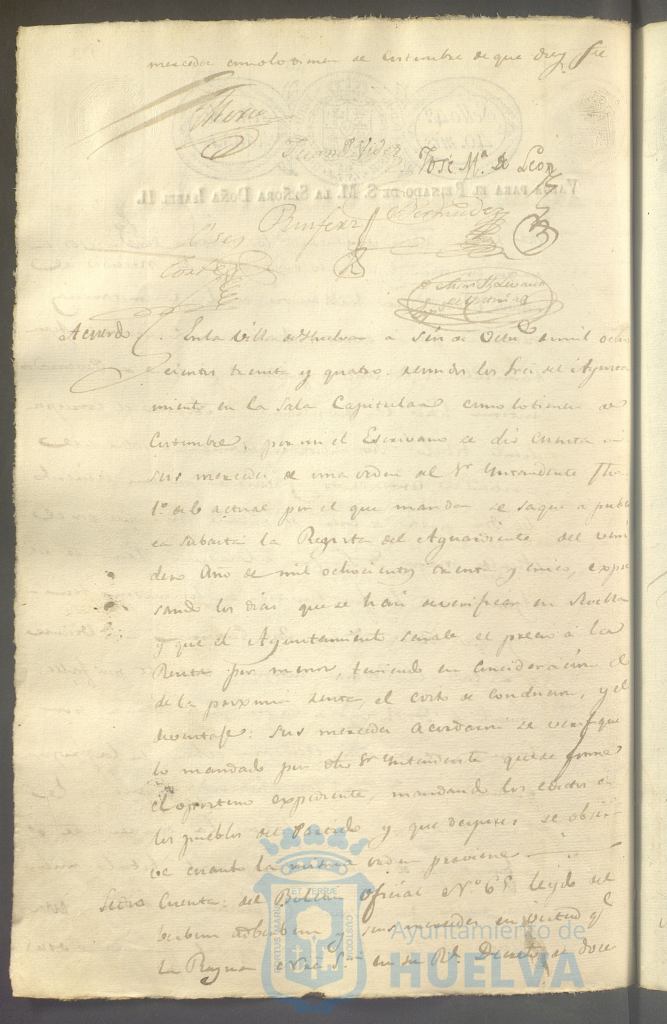 mercedes como lo tienen de costumbre de que doy fe
José Mª. de Leon
VALGA PARA EL REINADO DE S. M. LA SEÑORA DOÑA ISABEL II.
Bermudez
Cortes
Acuerdo En la Villa de Huelva a seis de Octu. de mil ocho
cientos treinta y quatro: reunidos los Sres. del Ayunta
miento en la Sala Capitular como lo tienen de
Costumbre, por mi el Escrivano se dio cuenta a
sus mercedes de una orden del Sr. Yntendente fha.
1º. de actual por el que manda se saque a publi
ca subasta la Renta del Aguardiente del veni
dero Año de mil ochocientos treinta y cinco, expre
sando los dias que se han de verificar en Sevilla
y que el Ayuntamiento señale el precio a la
Renta por menor, teniendo en consideracion el
de la proxima renta, el costo de conducion, y el
aventaje: sus mercedes acordaron se verifique
lo mandado por dho Sr. Yntendente que se forme
el oportuno expediente, mandando los edictos a
los pueblos del Partido y que despues se obser
ve cuanto la misma orden previene
Cuenta: del Boletin Oficial Nº. 65 leydo de
verbum ad verbum y sus mercedes en virtud q.
la Reyna Nra. Sra. en su Rl. Decreto de doce
Ayuntamiento de
HUELVA